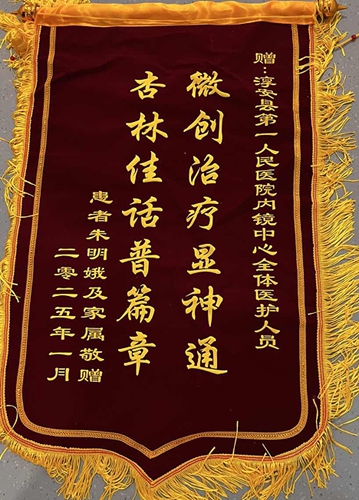 赠：淳安县第一人民医院内镜中心全体医护人员
微创治疗显神通
杏林佳话普篇章
患者朱明娥及家属敬赠
二零二五年一月